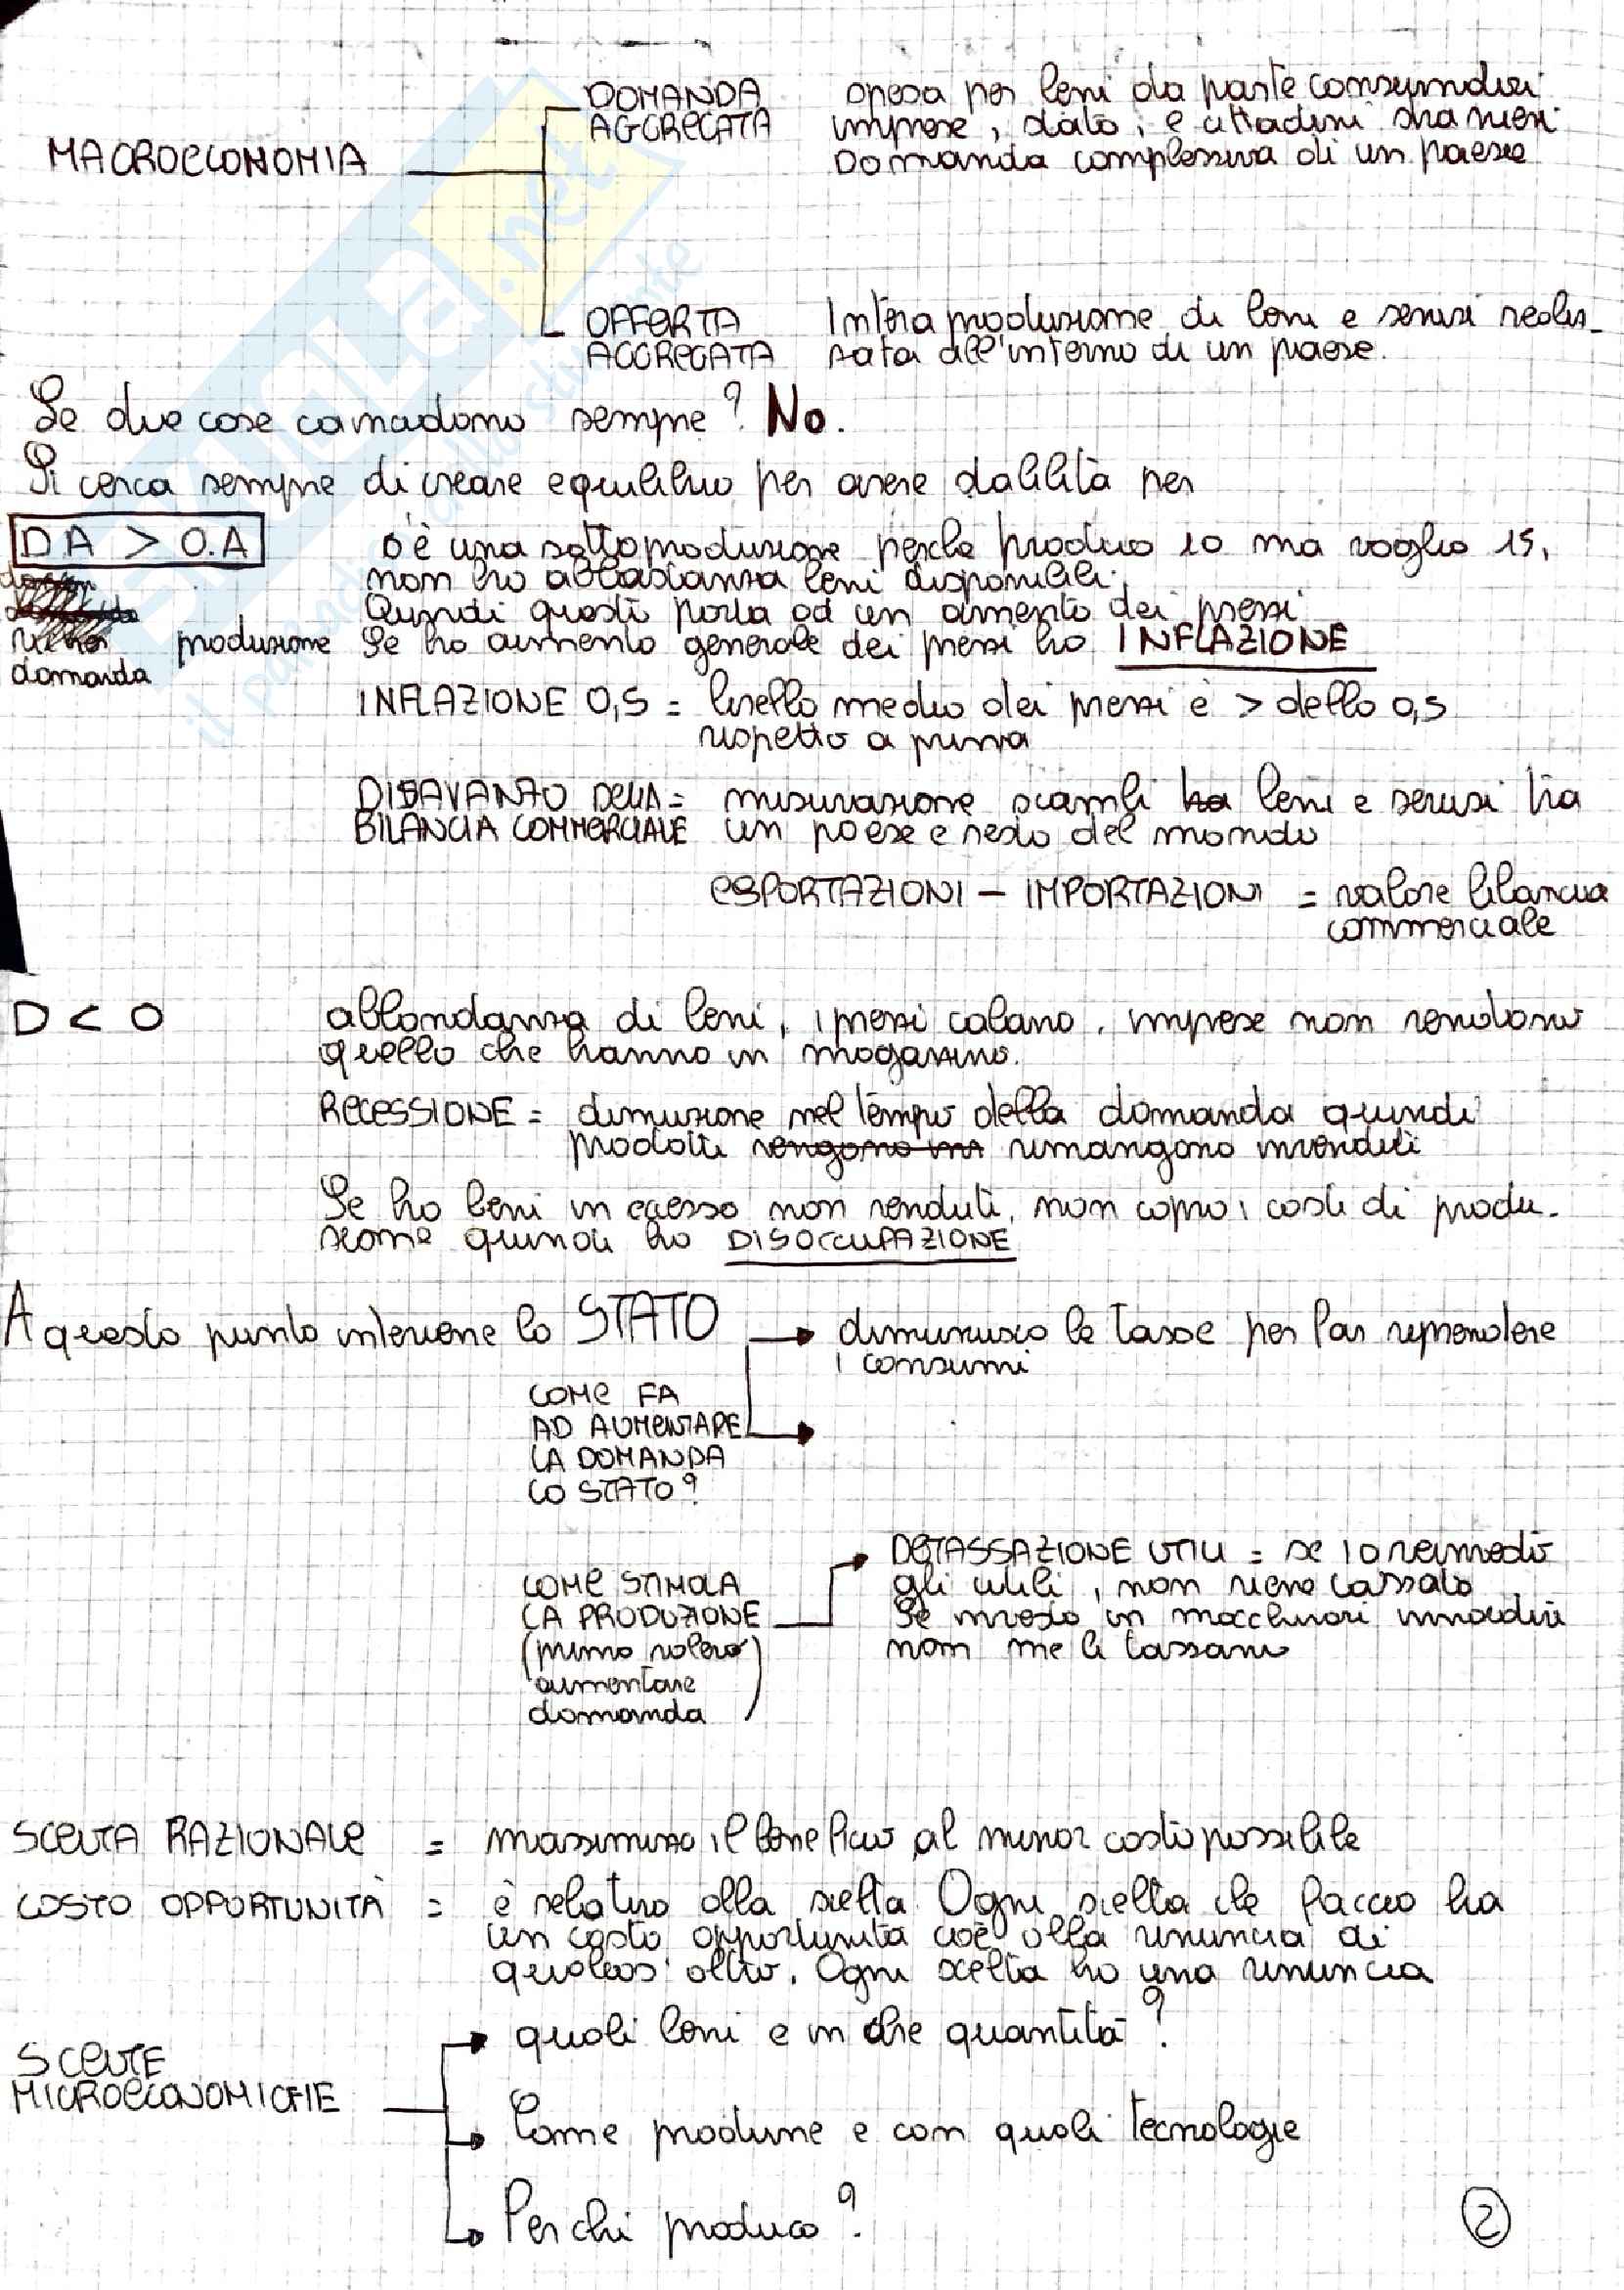 MACROECONOMIA
DOMANDA
AGGREGATA
spesa per beni da parte consumatori
imprese, stato, e cittadini stranieri
Domanda complessiva di un paese
OFFERTA
AGGREGATA
Intera produzione di beni e servizi realiz_
zata all'interno di un paese.
Le due cose coincidono sempre? No.
Si cerca sempre di creare equilibrio per avere stabilità per
DA > O.A
c'è una sottoproduzione perché produco 10 ma voglio 15,
non ho abbastanza beni disponibili.
Quindi questo porta ad un aumento dei prezzi
produzione
domanda
Se ho aumento generale dei prezzi ho INFLAZIONE
INFLAZIONE 0,5 = livello medio dei prezzi è > dello 0,5
rispetto a prima
DISAVANZO DELLA = misurazione scambi tra beni e servizi tra
BILANCIA COMMERCIALE un paese e resto del mondo
ESPORTAZIONI – IMPORTAZIONI = valore bilancia
commerciale
D < O
abbondanza di beni, i prezzi calano, imprese non vendono
quello che hanno in magazzino.
RECESSIONE = diminuzione nel tempo della domanda quindi
prodotti vengono inv rimangono invenduti
Se ho beni in eccesso non venduti, non copro i costi di produ-
zione quindi ho DISOCCUPAZIONE
A questo punto interviene lo STATO
diminuisco le tasse per far riprendere
i consumi
COME FA
AD AUMENTARE
LA DOMANDA
LO STATO?
COME STIMOLA
LA PRODUZIONE
(primo volevo
aumentare
domanda)
DETASSAZIONE UTILI = se io reinvesto
gli utili, non viene tassato
Se investo in macchinari innovativi
non me li tassano
SCELTA RAZIONALE = massimizzo il beneficio al minor costo possibile
COSTO OPPORTUNITÀ = è relativo alla scelta. Ogni scelta che faccio ha
un costo opportunità cioè alla rinuncia di
qualcos'altro. Ogni scelta ho una rinuncia
SCELTE
MICROECONOMICHE
quali beni e in che quantità?
Come produrre e con quali tecnologie
Per chi produco?
2